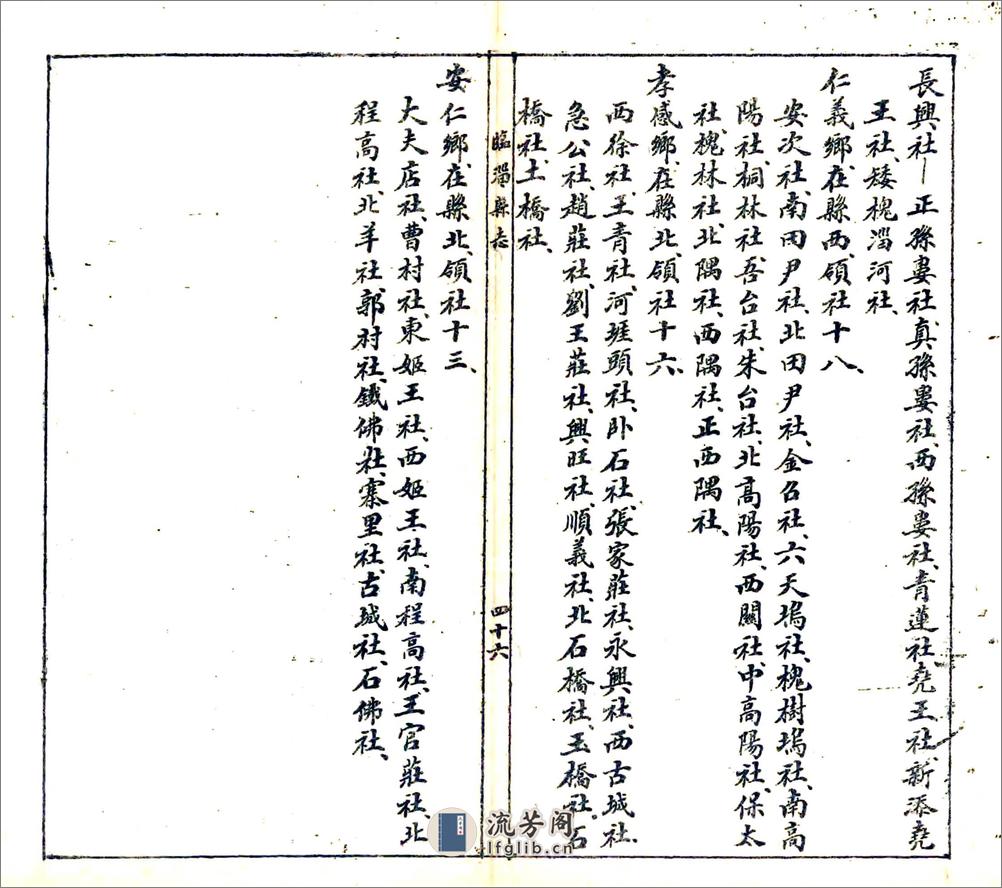 長興社、正孫婁社、真孫婁社、西孫婁社、青蓮社、堯王社、新添堯
王社、矮槐淄河社、
仁義鄉、在縣西、領社十八、
安次社、南田尹社、北田尹社、金召社、六天塢社、槐樹塢社、南高
陽社、桐林社、吾台社、朱台社、北高陽社、西關社、中高陽社、保太
社、槐林社、北隅社、西隅社、正西隅社、
孝感鄉、在縣北、領社十六、
西徐社、王青社、河堐頭社、卧石社、張家莊社、永興社、西古城社、
急公社、趙莊社、劉王莊社、興旺社、順義社、北石橋社、玉橋社、石
橋社、土橋社、
臨淄縣志
四十六
安仁鄉、在縣北、領社十三、
大夫店社、曹村社、東姬王社、西姬王社、南程高社、王官莊社、北
程高社、北羊社、郭村社、鐵佛社、寨里社、古城社、石佛社、
流芳阁
lfglib.cn